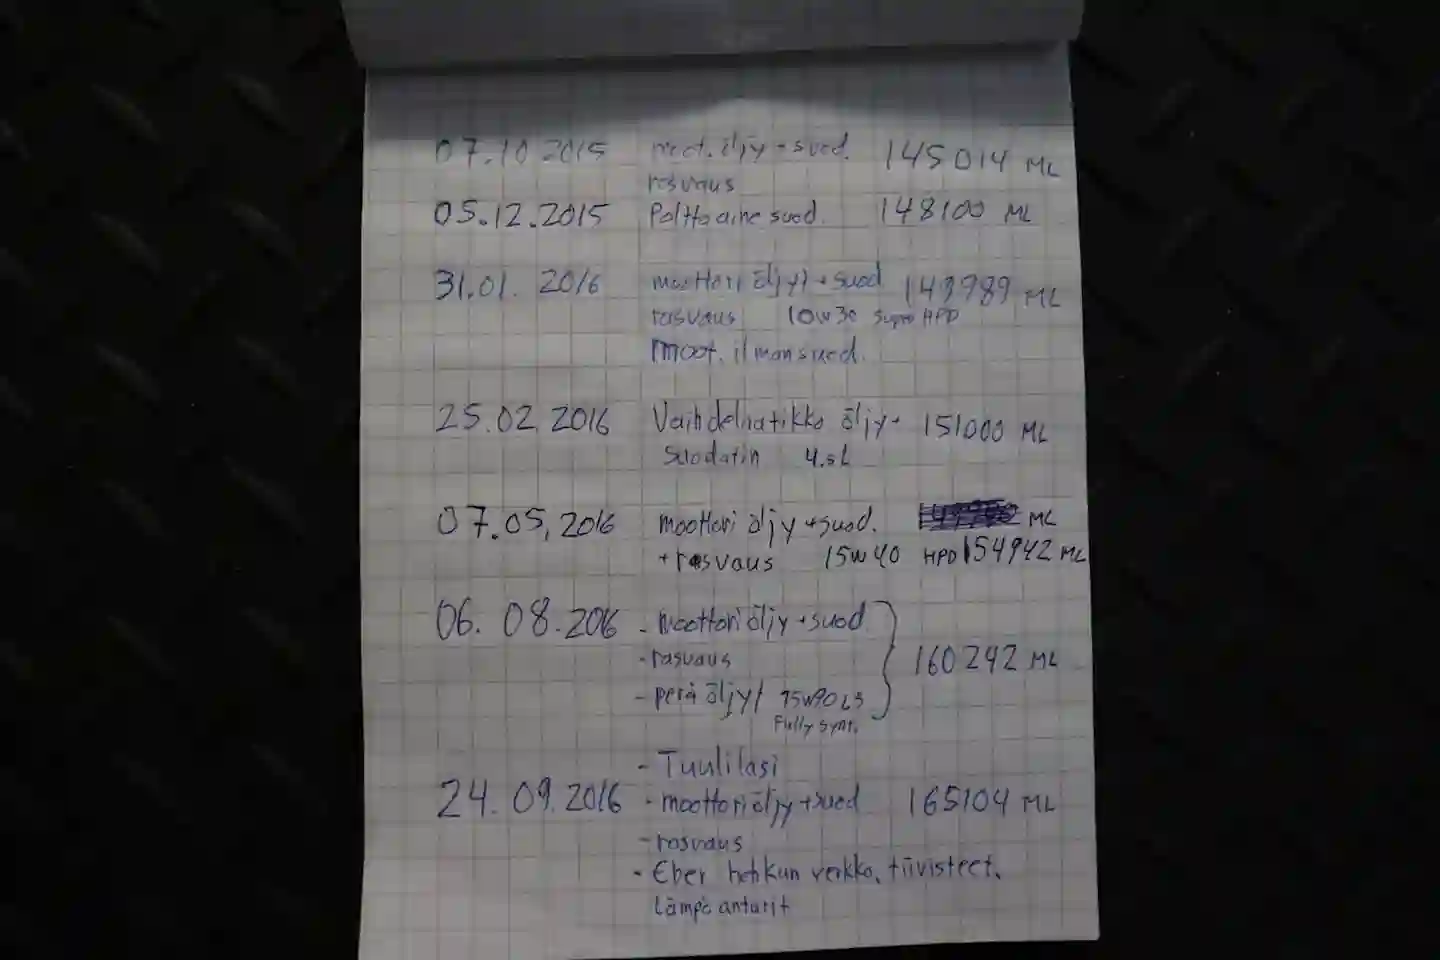 07.10 2015 moot. öljy + suod. 145014 ML
rasvaus
05.12.2015 Polttoaine suod. 148100 ML
31.01. 2016 moottori öljyt + suod 149989 ML
rasvaus 10w30 Super HPD
moot. ilmansuod.
25.02 2016 Vaihdelaatikko öljy + 151000 ML
suodatin 4.5L
07.05, 2016 moottori öljy + suod. ML
+ rasvaus 15w40 HPD 154942 ML
06. 08.2016 - moottori öljy + suod
- rasvaus 160242 ML
- perä öljyt 75w90 LS
Fully Synt.
- Tuulilasi
24. 09. 2016 - moottori öljy + suod 165104 ML
- rasvaus
- Eber hehkun verkko, tiivisteet,
Lämpö anturit